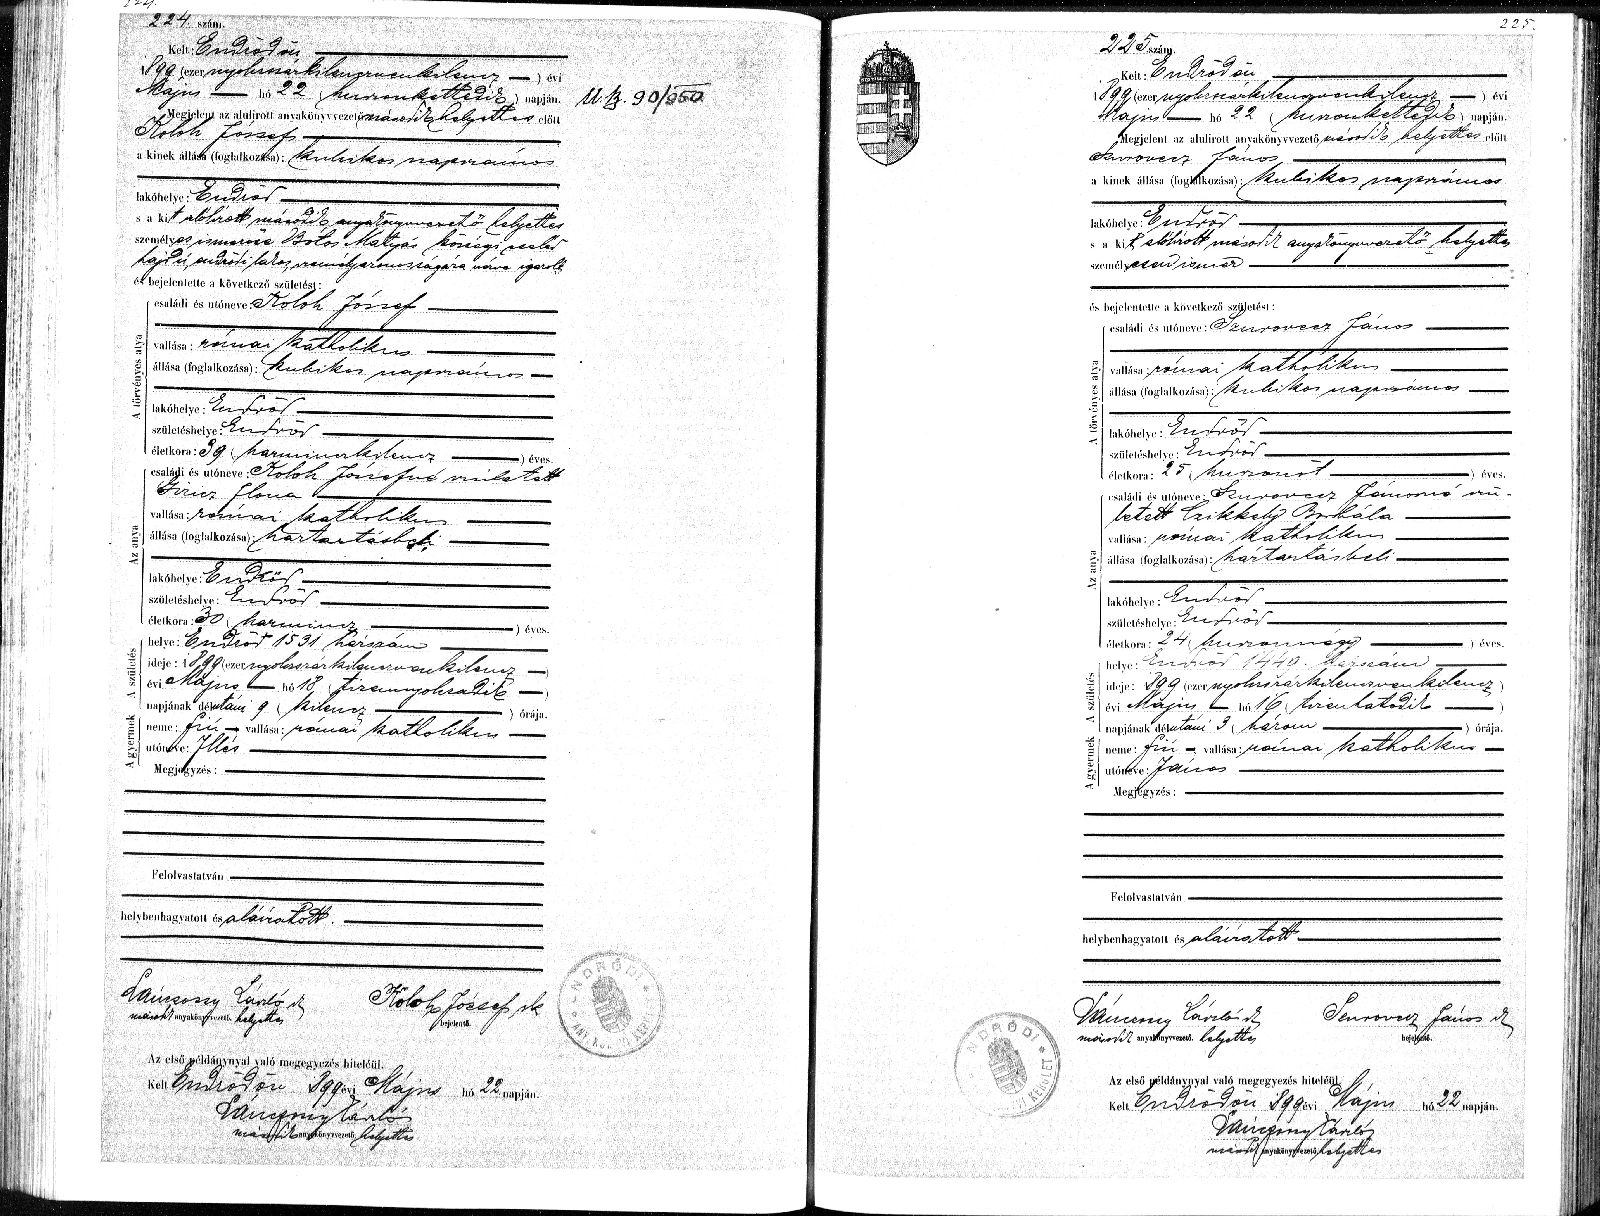 224.
224. szám.
Kelt: Endrődön
1899 (ezernyolcszázkilencvenkilencz) évi
Május hó 22 (huszonkettedik) napján.
U. B. 90/950
Megjelent az alulirott anyakönyvvezető második helyettes előtt
Koloh József
a kinek állása (foglalkozása): kubikos napszámos
lakóhelye: Endrőd
s a kit alólirott második anyakönyvvezető helyettes
személyes ismerőse Bótos Mátyás községi
hajdú, endrődi lakos, személyazonosságára nézve igazolt
és bejelentette a következő születést:
A törvényes atya
családi és utóneve: Koloh József
vallása: római katholikus
állása (foglalkozása): kubikos napszámos
lakóhelye: Endrőd
születéshelye: Endrőd
életkora: 39 (harminczkilencz) éves.
Az anya
családi és utóneve: Koloh Józsefné született
Ilona
vallása: római katholikus
állása (foglalkozása): háztartásbeli
lakóhelye: Endrőd
születéshelye: Endrőd
életkora: 30 (harmincz) éves.
A születés
helye: Endrőd 1531 házszám
ideje: 1899 (ezernyolcszázkilenczvenkilencz)
évi Május hó 18 (tizennyolczadik)
napjának délutáni 9 (kilencz) órája.
A gyermek
neme: fiú vallása: római katholikus
utóneve: Illés
Megjegyzés:
Felolvastatván
helybenhagyatott és aláiratott.
Láncsossy László
második anyakönyvvezető helyettes
Koloh József
bejelentő.
ENDRŐDI
Az első példánynyal való megegyezés hiteléül.
Kelt Endrődön 899 évi Május hó 22 napján.
László
második anyakönyvvezető helyettes
225.
225 szám.
Kelt: Endrődön
1899 (ezernyolcszázkilenczvenkilencz) évi
Május hó 22 (huszonkettedik) napján.
Megjelent az alulirott anyakönyvvezető második helyettes előtt
Szurovecz János
a kinek állása (foglalkozása): kubikos napszámos
lakóhelye: Endrőd
s a kit alólirott második anyakönyvvezető helyettes
személyesen ismer
és bejelentette a következő születést:
A törvényes atya
családi és utóneve: Szurovecz János
vallása: római katholikus
állása (foglalkozása): kubikos napszámos
lakóhelye: Endrőd
születéshelye: Endrőd
életkora: 25 (huszonöt) éves.
Az anya
családi és utóneve: Szurovecz Jánosné szü-
letett Czikkely Borbála
vallása: római katholikus
állása (foglalkozása): háztartásbeli
lakóhelye: Endrőd
születéshelye: Endrőd
életkora: 24 (huszonnégy) éves.
A születés
helye: Endrőd 1440. házszám
ideje: 1899 (ezernyolczszázkilenczvenkilencz)
évi Május hó 16 (tizenhatodik)
napjának délutáni 3 (három) órája.
A gyermek
neme: fiú vallása: római katholikus
utóneve: János
Megjegyzés:
Felolvastatván
helybenhagyatott és aláiratott
László
második anyakönyvvezető helyettes
Szurovecz János
bejelentő.
ENDRŐDI
Az első példánynyal való megegyezés hiteléül.
Kelt Endrődön 899 évi Május hó 22 napján.
László
második anyakönyvvezető helyettes